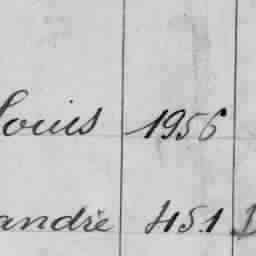 Louis 1956
andré 451